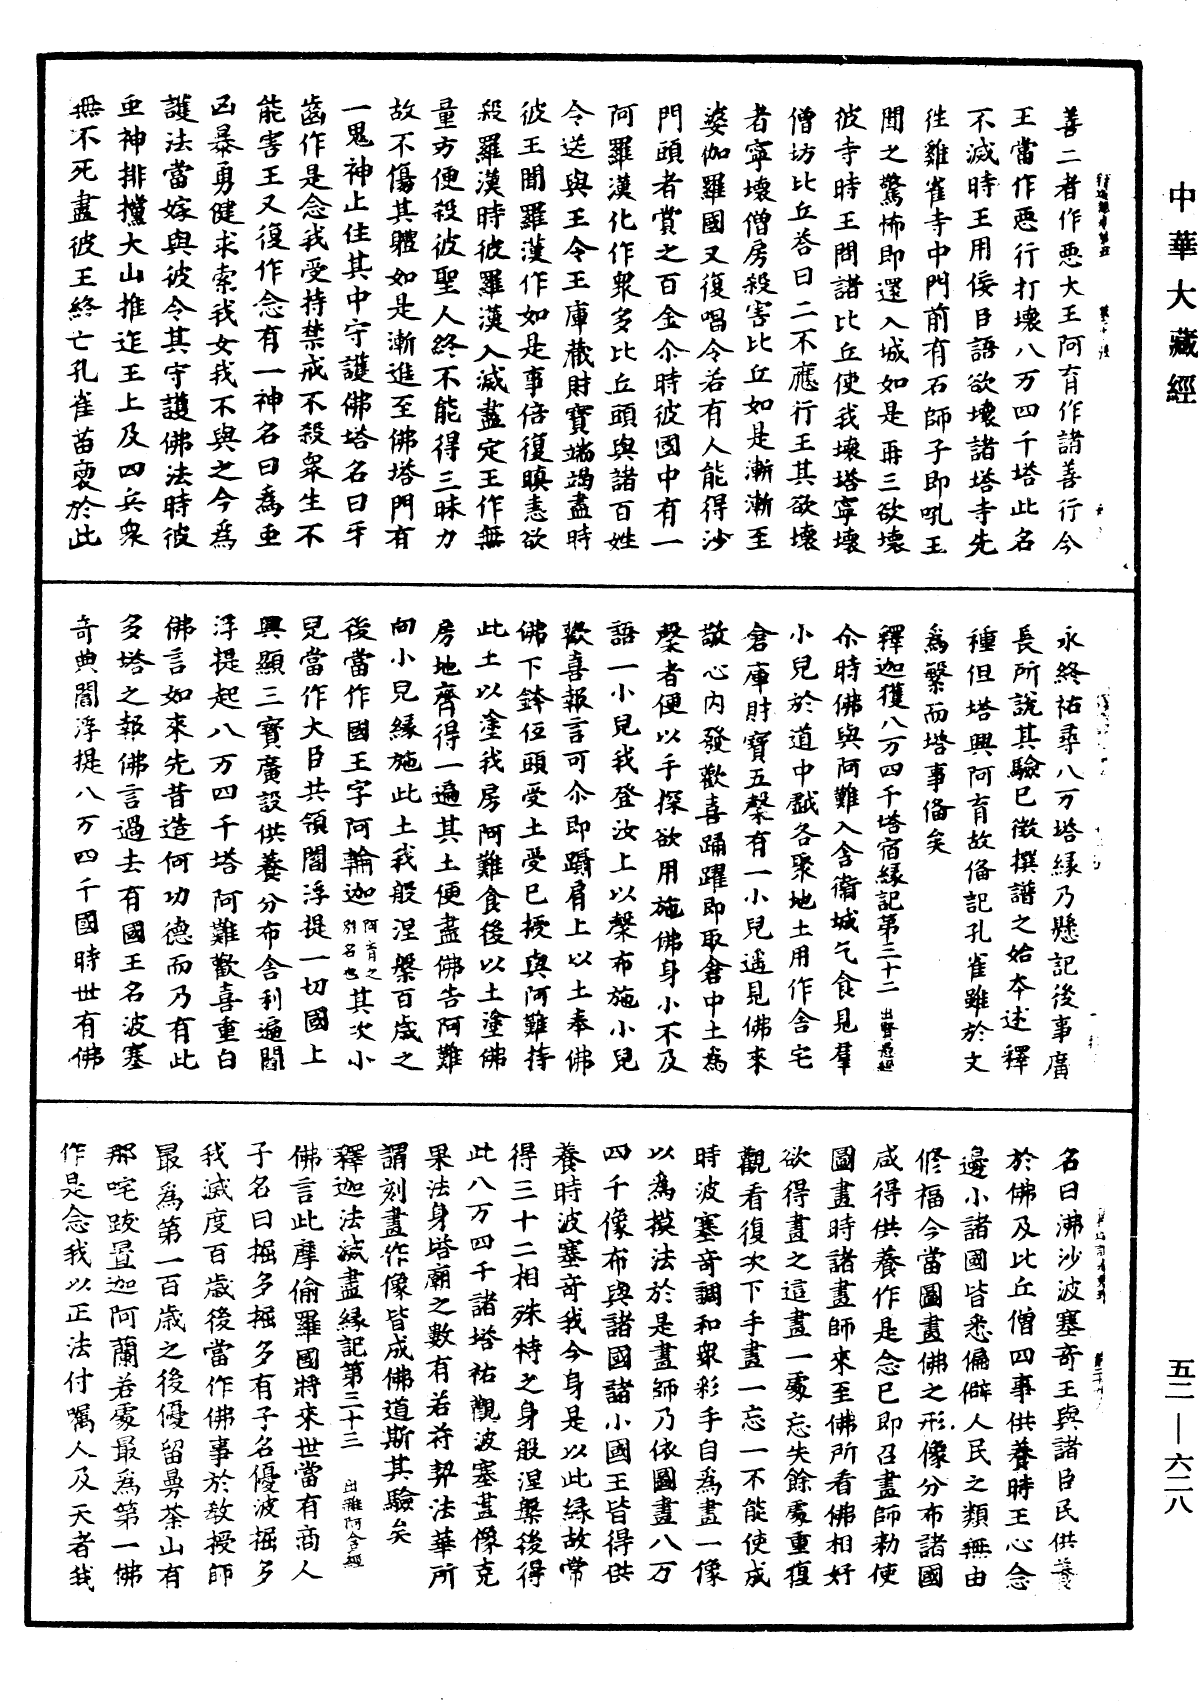 中華大藏經
善二者作惡大王阿育作諸善行今
王當作惡行打壞八万四千塔此名
不滅時王用佞臣語欲壞諸塔寺先
往雞雀寺中門前有石師子即吼王
聞之驚怖即還入城如是再三欲壞
彼寺時王問諸比丘使我壞塔寧壞
僧坊比丘荅曰二不應行王其欲壞
者寧壞僧房殺害比丘如是漸漸至
婆伽羅國又復唱令若有人能得沙
門頭者賞之百金尒時彼國中有一
阿羅漢化作衆多比丘頭與諸百姓
令送與王令王庫藏財寶端竭盡時
彼王聞羅漢作如是事倍復瞋恚欲
殺羅漢時彼羅漢入滅盡定王作無
量方便殺彼聖人終不能得三昧力
故不傷其體如是漸進至佛塔門有
一鬼神止住其中守護佛塔名曰牙
齒作是念我受持禁戒不殺衆生不
能害王又復作念有一神名曰爲虫
凶暴勇健求索我女我不與之今爲
護法當嫁與彼令其守護佛法時彼
虫神排攩大山推迮王上及四兵衆
無不死盡彼王終亡孔雀苗裔於此
永終祐尋八万塔緣乃懸記後事廣
長所說其驗已徵撰譜之始本述釋
種但塔興阿育故俻記孔雀雖於文
爲繁而塔事俻矣
釋迦獲八万四千塔宿緣記第三十二 出賢愚經
尒時佛與阿難入舍衛城乞食見羣
小兒於道中戱各聚地土用作舍宅
倉庫財寶五槃有一小兒遥見佛來
敬心內發歡喜踊躍即取倉中土爲
槃者便以手探欲用施佛身小不及
語一小兒我登汝上以槃布施小兒
歡喜報言可尒即躡肩上以土奉佛
佛下鉢伍頭受土受已授與阿難持
此土以塗我房阿難食後以土塗佛
房地齊得一遍其土便盡佛告阿難
向小兒緣施此土我般涅槃百歲之
後當作國王字阿輸迦 阿育之別名也 其次小
兒當作大臣共領閻浮提一切國上
興顯三寶廣設供養分布舍利遍閻
浮提起八万四千塔阿難歡喜重白
佛言如來先昔造何功德而乃有此
多塔之報佛言過去有國王名波塞
奇典閻浮提八万四千國時世有佛
名曰沸沙波塞奇王與諸臣民供養
於佛及比丘僧四事供養時王心念
邊小諸國皆悉偏僻人民之類無由
修福今當圖畫佛之形像分布諸國
咸得供養作是念已即召畫師勑使
圖畫時諸畫師來至佛所看佛相好
欲得畫之這畫一處忘失餘處重復
觀看復次下手畫一忘一不能使成
時波塞奇調和衆彩手自爲畫一像
以爲摸法於是畫師乃依圖畫八万
四千像布與諸國諸小國王皆得供
養時波塞奇我今身是以此緣故常
得三十二相殊特之身般涅槃後得
此八万四千諸塔祐觀波塞畫像克
果法身塔廟之數有若符契法華所
謂刻畫作像皆成佛道斯其驗矣
釋迦法滅盡緣記第三十三 出雜阿含經
佛言此摩偷羅國將來世當有商人
子名曰掘多掘多有子名優波掘多
我滅度百歲後當作佛事於教授師
最爲第一百歲之後優留曼荼山有
那咤跋置迦阿蘭若處最爲第一佛
作是念我以正法付囑人及天者我
五二—六二八